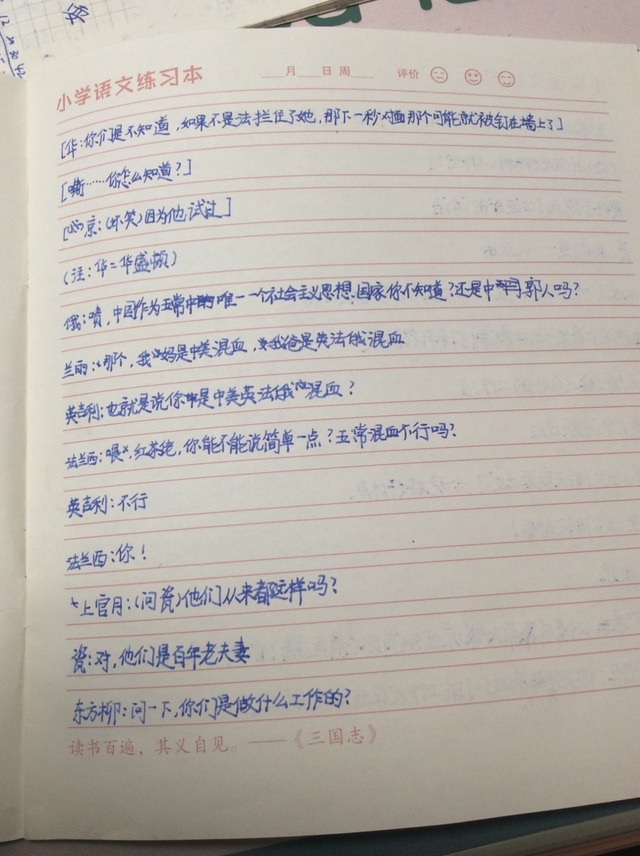 小学语文练习本
月 日 周 评价
[华:你们是不知道,如果不是法拦住了她,那下一秒对面那个可能就被钉在墙上了]
[嘶……你怎么知道?]
京:(坏笑)因为他试过]
(注:华=华盛顿)
俄:啧,中国作为五常中唯一一个社会主义思想国家你不知道?还是中国人吗?
兰雨:那个,我妈是中美混血,我爸是英法俄混血
英吉利:也就是说你是中美英法俄混血?
法兰西:喂,红茶佬,你能不能说简单一点?五常混血不行吗?
英吉利:不行
法兰西:你!
上官月:(问瓷)他们从来都这样吗?
瓷:对,他们是百年老夫妻
东方柳:问一下,你们是做什么工作的?
读书百遍,其义自见。——《三国志》